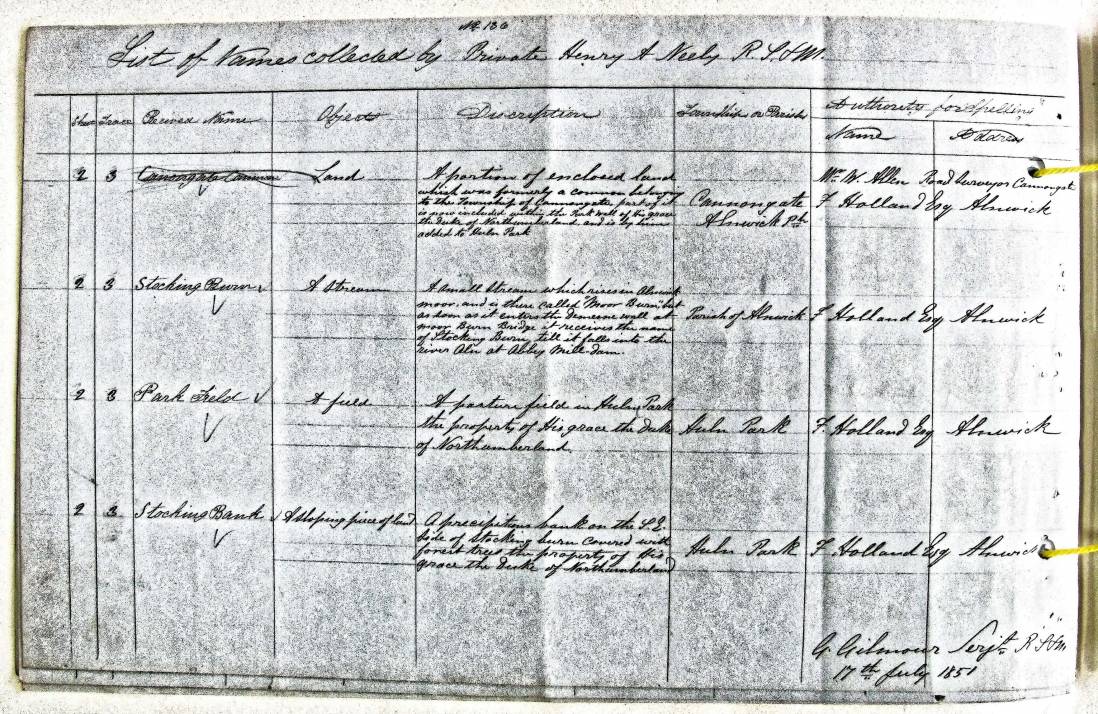 No 130
List of Names collected by Private Henry A Neely R.S.&M.
Sheet Trace Received Name Object Description Township or Parish Authority for Spelling
Name Address
2 3 Cannongate Common Land A portion of enclosed land
which was formerly a common belong
to the Township of Cannongate part of it
is now included within the Park wall of His grace
the duke of Northumberland and is by him
added to Huln Park
Cannongate
Alnwick Ph
Mr. W. Allen Road Surveyor Cannongate
F Holland Esq Alnwick
2 3 Stocking Burn A Stream A small stream which rises in Alnwick
moor, and is there called "Moor Burn" but
as soon as it enters the demesne wall at
moor Burn Bridge it receives the name
of Stocking Burn, till it falls into the
river Aln at Abby Mill-dam.
Parish of Alnwick F Holland Esq Alnwick
2 3 Park Field A field A pasture field in Huln Park
the property of His grace the duke
of Northumberland.
Huln Park F. Holland Esq Alnwick
2 3 Stocking Bank A Sloping piece of land A precipitous bank on the S.E.
side of Stocking burn covered with
forest trees the property of His
grace the duke of Northumberland
Huln Park F Holland Esq Alnwick
G Gilmour Serjt. R S & M
17th July 1851